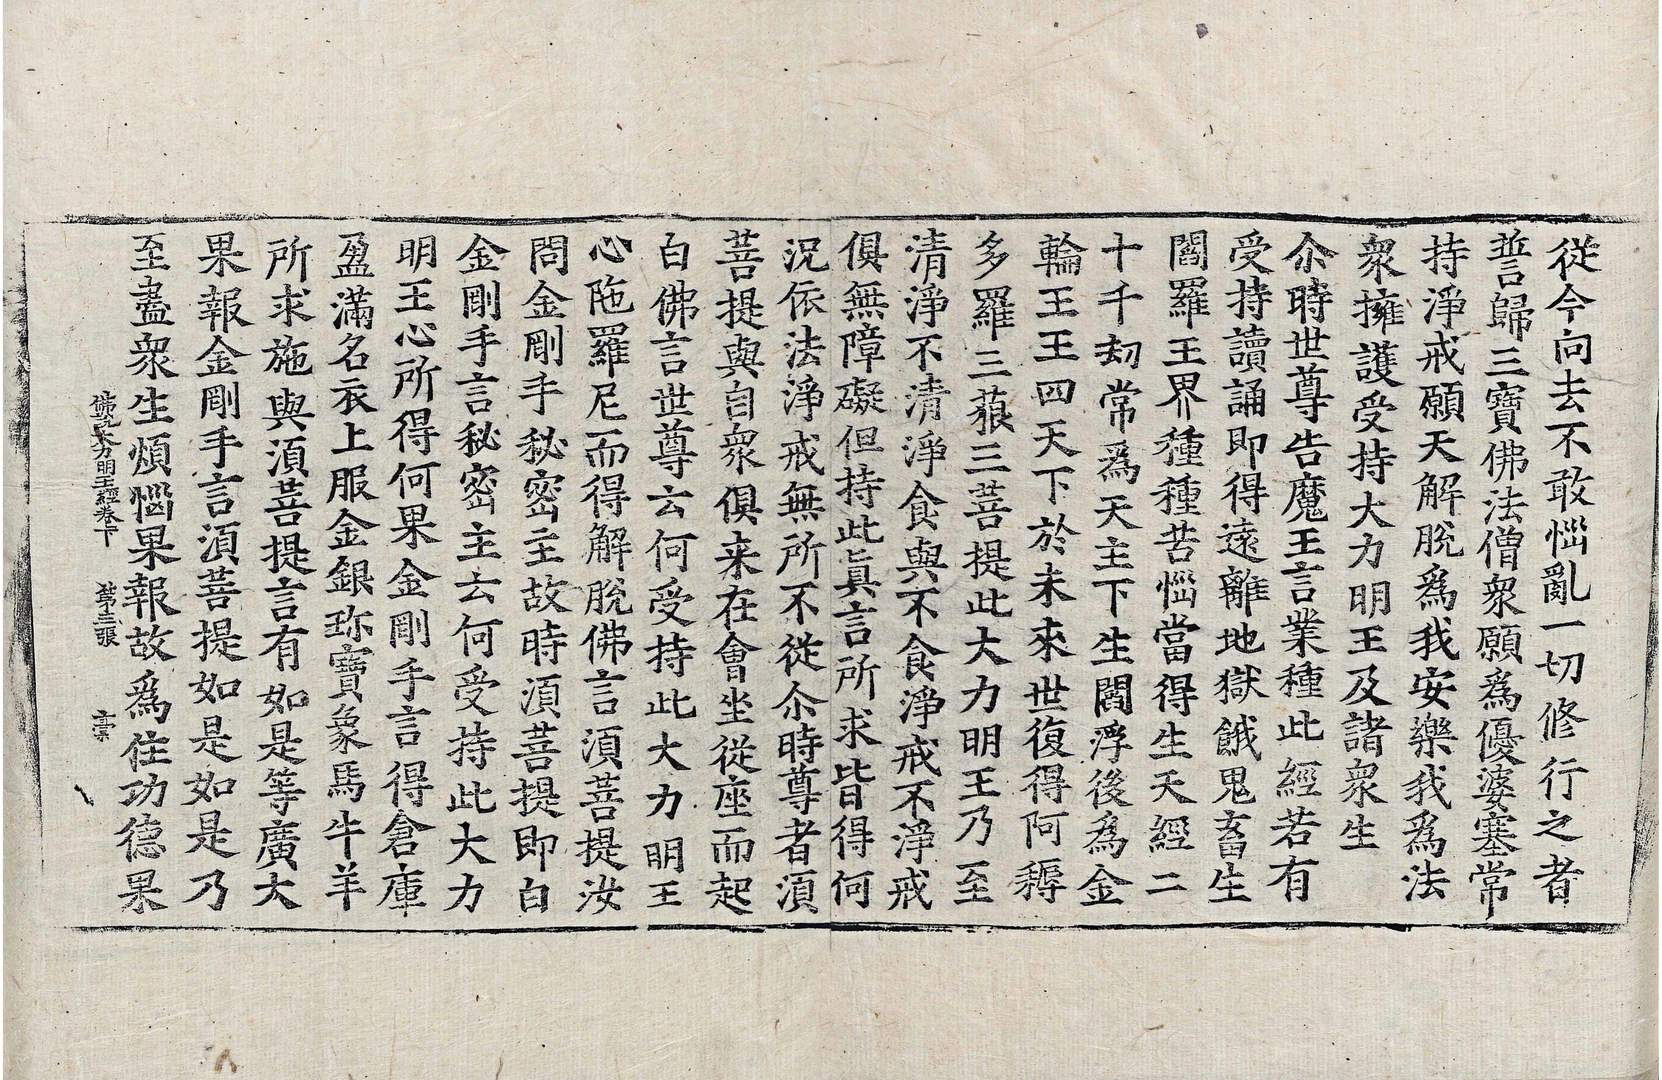 從今向去不敢惱亂一切修行之者
誓歸三寶佛法僧衆願爲優婆塞常
持淨戒願天解脫爲我安樂我爲法
衆擁護受持大力明王及諸衆生
尒時世尊告魔王言業種此經若有
受持讀誦即得遠離地獄餓鬼畜生
閻羅王界種種苦惱當得生天經二
十千劫常爲天主下生閻浮後爲金
輪王王四天下於未來世復得阿耨
多羅三藐三菩提此大力明王乃至
清淨不清淨食與不食淨戒不淨戒
俱無障礙但持此眞言所求皆得何
況依法淨戒無所不從尒時尊者須
菩提與自衆俱来在會坐從座而起
白佛言世尊云何受持此大力明王
心陁羅尼而得解脫佛言須菩提汝
問金剛手秘密主故時須菩提即白
金剛手言秘密主云何受持此大力
明王心所得何果金剛手言得倉庫
盈滿名衣上服金銀珎寶象馬牛羊
所求施與須菩提言有如是等廣大
果報金剛手言須菩提如是如是乃
至盡衆生煩惱果報故爲住功德果
佛說大力明王經卷下 第十三張